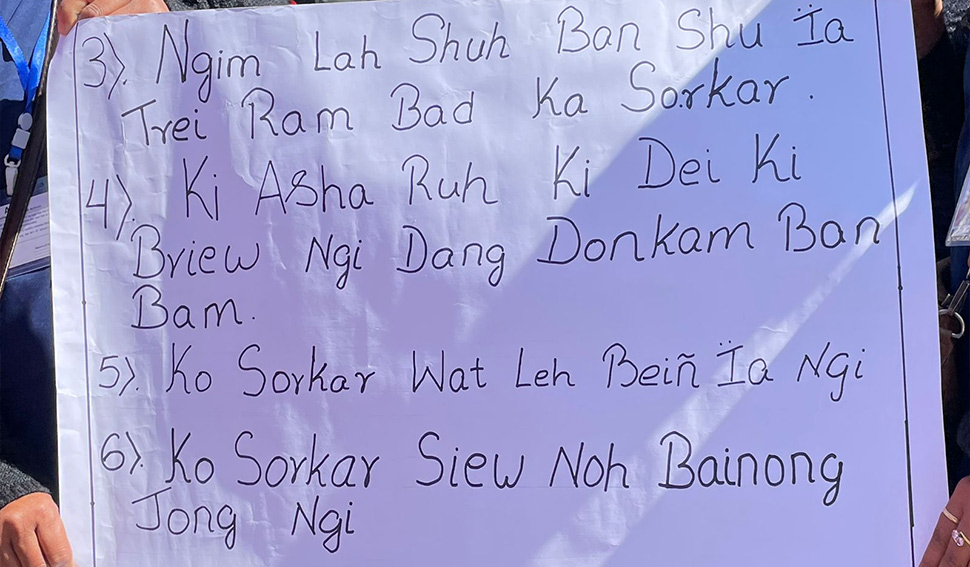 3). Ngim Lah Shuh Ban Shu Ïa
Trei Ram Bad Ka Sorkar.
4). Ki ASha Ruh Ki Dei Ki
Briew Ngi Dang Donkam Ban
Bam.
5). Ko Sorkar Wat Leh Beiñ Ïa Ngi
6). Ko Sorkar Siew Noh Bainong
Jong Ngi